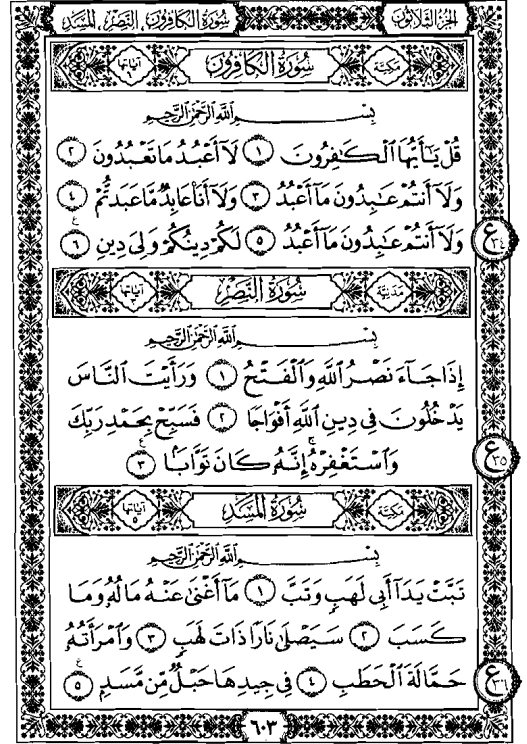 الجزء الثلاثون سورة الكافرون، النصر، المسد
مكية سورة الكافرون آياتها ٦
بِسْمِ اللَّهِ الرَّحْمَٰنِ الرَّحِيمِ
قُلْ يَـٰٓأَيُّهَا ٱلْكَـٰفِرُونَ ١ لَآ أَعْبُدُ مَا تَعْبُدُونَ ٢
وَلَآ أَنتُمْ عَـٰبِدُونَ مَآ أَعْبُدُ ٣ وَلَآ أَنَا۠ عَابِدٌ مَّا عَبَدتُّمْ ٤
وَلَآ أَنتُمْ عَـٰبِدُونَ مَآ أَعْبُدُ ٥ لَكُمْ دِينُكُمْ وَلِىَ دِينِ ٦
ع ٣٤
مدنية سورة النصر آياتها ٣
بِسْمِ اللَّهِ الرَّحْمَٰنِ الرَّحِيمِ
إِذَا جَآءَ نَصْرُ ٱللَّهِ وَٱلْفَتْحُ ١ وَرَأَيْتَ ٱلنَّاسَ
يَدْخُلُونَ فِى دِينِ ٱللَّهِ أَفْوَاجًا ٢ فَسَبِّحْ بِحَمْدِ رَبِّكَ
وَٱسْتَغْفِرْهُ إِنَّهُۥ كَانَ تَوَّابًۢا ٣
ع ٣٥
مكية سورة المسد آياتها ٥
بِسْمِ اللَّهِ الرَّحْمَٰنِ الرَّحِيمِ
تَبَّتْ يَدَآ أَبِى لَهَبٍ وَتَبَّ ١ مَآ أَغْنَىٰ عَنْهُ مَالُهُۥ وَمَا
كَسَبَ ٢ سَيَصْلَىٰ نَارًا ذَاتَ لَهَبٍ ٣ وَٱمْرَأَتُهُۥ
حَمَّالَةَ ٱلْحَطَبِ ٤ فِى جِيدِهَا حَبْلٌ مِّن مَّسَدٍۭ ٥
ع ٣٦
٦٠٣